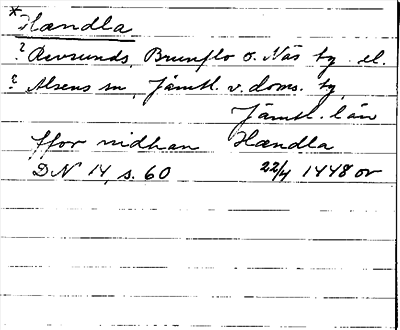 *Hændla
? Revsunds, Brunflo o. Näs tg. el.
? Alsens sn, Jämtl. v. doms. tg,
Jämtl. län
ffor nidhan Hændla
DN 14, s. 60 22/4 1448 or